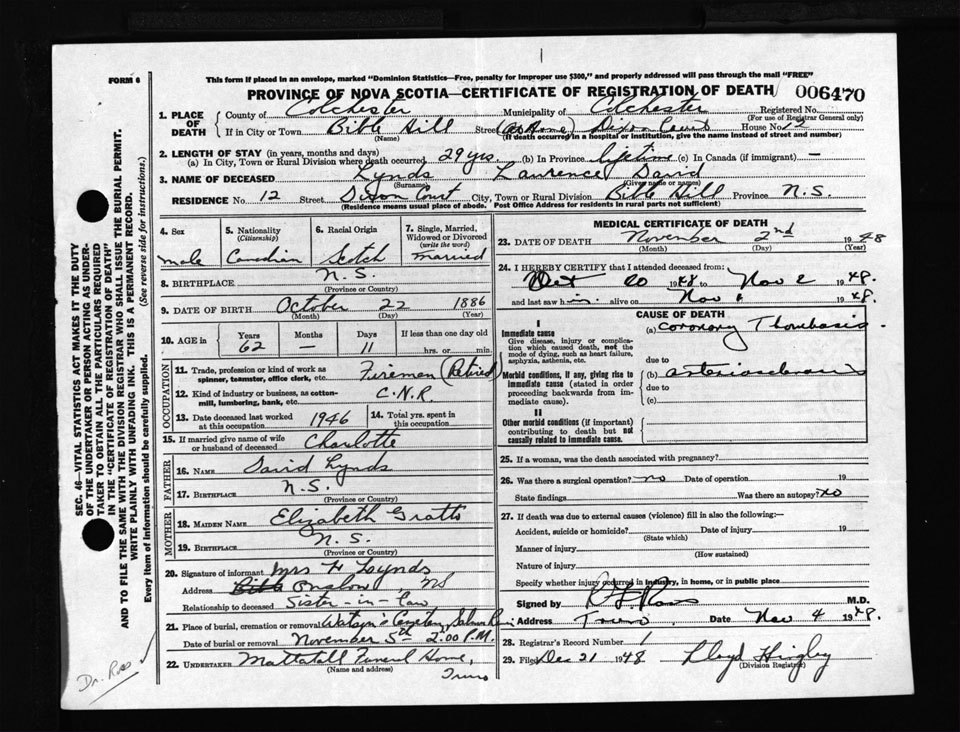 FORM 6
This form if placed in an envelope, marked "Dominion Statistics—Free, penalty for improper use $300," and properly addressed will pass through the mail "FREE"
PROVINCE OF NOVA SCOTIA—CERTIFICATE OF REGISTRATION OF DEATH 006470
1. PLACE OF DEATH
County of Colchester Municipality of Colchester Registered No.
(For use of Registrar General only)
If in City or Town Bible Hill Street (At Home) Dixon Court House No. 12
(Name) (If death occurred in a hospital or institution, give the name instead of street and number)
2. LENGTH OF STAY (in years, months and days)
(a) In City, Town or Rural Division where death occurred 29 yrs. (b) In Province lifetime (c) In Canada (if immigrant) —
3. NAME OF DECEASED Lynds Laurence David
(Surname) (Given name or names)
RESIDENCE No. 12 Street Dixon Court City, Town or Rural Division Bible Hill Province N.S.
(Residence means usual place of abode. Post Office Address for residents in rural parts not sufficient)
4. Sex
male
5. Nationality
(Citizenship)
Canadian
6. Racial Origin
Scotch
7. Single, Married, Widowed or Divorced
(write the word)
Married
8. BIRTHPLACE N.S.
(Province or Country)
9. DATE OF BIRTH October 22 1886
(Month) (Day) (Year)
10. AGE in
Years Months Days If less than one day old
62 — 11 hrs. or min.
OCCUPATION
11. Trade, profession or kind of work as spinner, teamster, office clerk, etc. Fireman (Retired)
12. Kind of industry or business, as cotton-mill, lumbering, bank, etc. C.N.R.
13. Date deceased last worked at this occupation 1946
14. Total yrs. spent in this occupation
15. If married give name of wife or husband of deceased Charlotte
FATHER
16. NAME David Lynds
17. BIRTHPLACE N.S.
(Province or Country)
MOTHER
18. MAIDEN NAME Elizabeth Gratto
19. BIRTHPLACE N.S.
(Province or Country)
20. Signature of informant Mrs H Lynds
Address Bible Onslow NS
Relationship to deceased Sister-in-law
21. Place of burial, cremation or removal Watson's Cemetery, Salmon
Date of burial or removal November 5th 2:00 P.M.
22. UNDERTAKER Mattatall Funeral Home, Truro
(Name and address)
MEDICAL CERTIFICATE OF DEATH
23. DATE OF DEATH November 2nd 1948
(Month) (Day) (Year)
24. I HEREBY CERTIFY that I attended deceased from:
Oct 20 1948 to Nov 2 1948.
and last saw him alive on Nov 1948.
CAUSE OF DEATH
I
Immediate cause
Give disease, injury or complication which caused death, not the mode of dying, such as heart failure, asphyxia, asthenia, etc.
(a) Coronary Thombasis
due to
Morbid conditions, if any, giving rise to immediate cause (stated in order proceeding backwards from immediate cause).
(b) arteriosclerosis
due to
(c)
II
Other morbid conditions (if important) contributing to death but not causally related to immediate cause.
25. If a woman, was the death associated with pregnancy?
26. Was there a surgical operation? no Date of operation 19
State findings Was there an autopsy? no
27. If death was due to external causes (violence) fill in also the following:—
Accident, suicide or homicide? Date of injury 19
(State which)
Manner of injury
(How sustained)
Nature of injury
Specify whether injury occurred in industry, in home, or in public place
Signed by Ross M.D.
Address Truro Date Nov 4 1948.
28. Registrar's Record Number 1
29. Filed Dec 21 1948 Lloyd Hingley
(Division Registrar)
SEC. 46—VITAL STATISTICS ACT MAKES IT THE DUTY
OF THE UNDERTAKER OR PERSON ACTING AS UNDER-
TAKER TO OBTAIN ALL THE PARTICULARS REQUIRED
IN THE "CERTIFICATE OF REGISTRATION OF DEATH"
AND TO FILE THE SAME WITH THE DIVISION REGISTRAR WHO SHALL ISSUE THE BURIAL PERMIT.
WRITE PLAINLY WITH UNFADING INK. THIS IS A PERMANENT RECORD.
Every item of information should be carefully supplied. (See reverse side for instructions.)
Dr. Ross